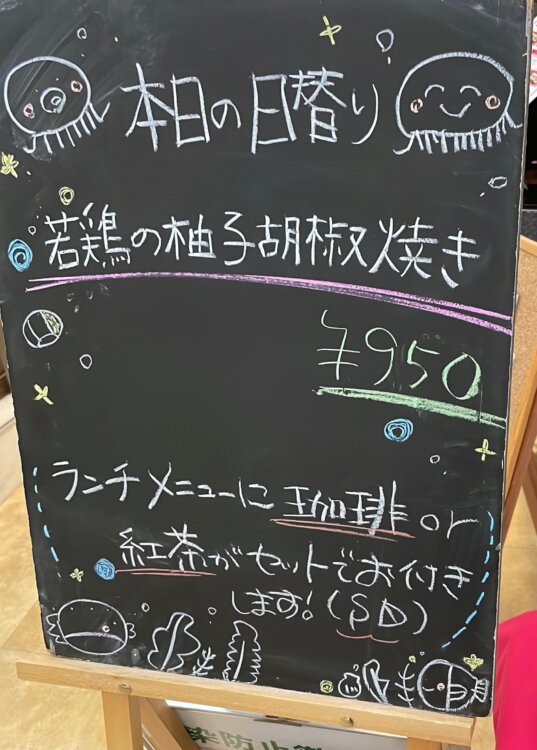 本日の日替り
若鶏の柚子胡椒焼き
¥950
ランチメニューに珈琲or
紅茶がセットでお付き
します!(SD)
染防止